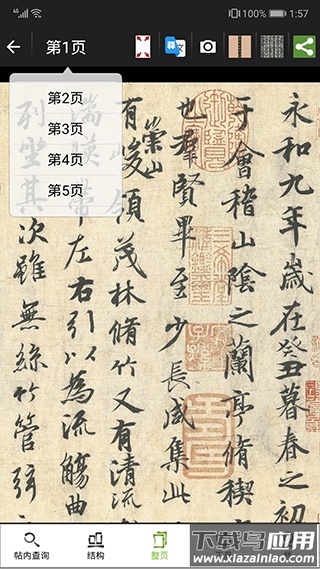 4G
1:57
第1页
第2页
第3页
第4页
第5页
永和九年歲在癸丑暮春之初
于會稽山陰之蘭亭脩禊
也羣賢畢至少長咸集此
有崇山峻領茂林脩竹又有清流
湍暎帶左右引以為流觴曲
列坐其次雖無絲竹管弦
帖内查询
结构
整页
下载鸟应用
www.xiazainiao.com